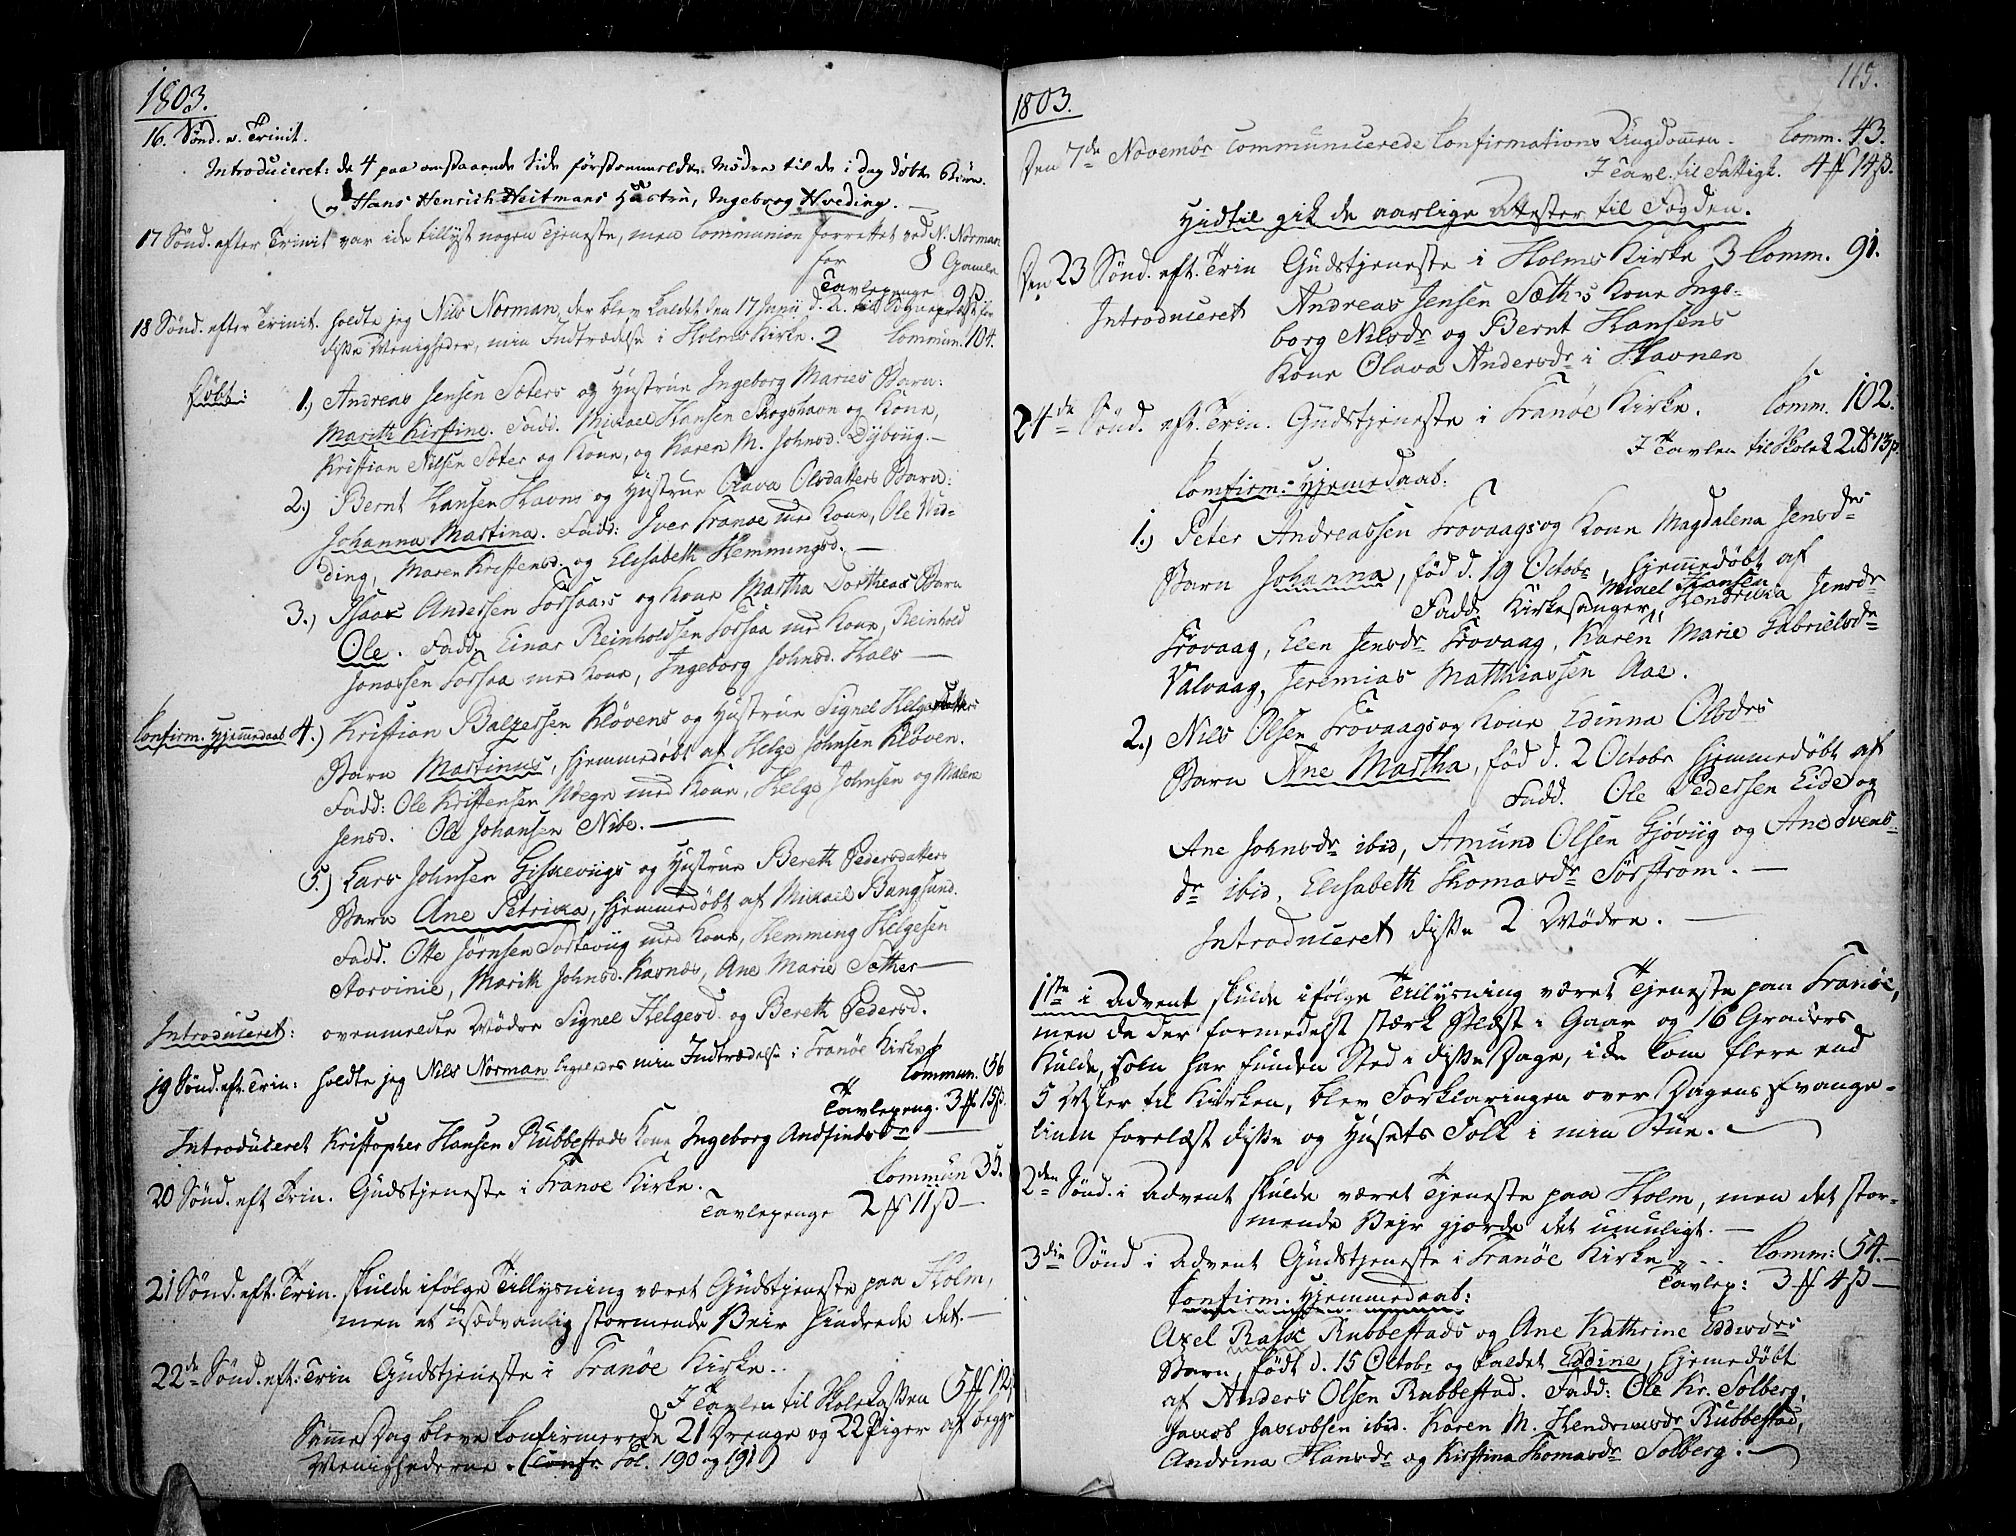 1803.
16. Sønd. e. Trinit.
Introduceret: de 4 paa omstaaende Side førstanmeldte Mødre til de i dag døbte Børn.
og Hans Henrich Heitmans Hustru, Ingeborg Hveding. —
17 Sønd. efter Trinit var ike tillyst nogen Tjeneste, men Communion forrettet ved N. Norman
for 8 Gamle
Tavlepenge 9 ß
18 Sønd. efter Trinit. holdte jeg Nils Norman, der blev kaldet den 17 Junii d. A. til Sognepræst for
disse Menigheder, min Indtrædelse i Holms Kirke. 2 Commun. 104.
Døbt:
1.) Andreas Jensen Sæters og Hustrue Ingeborg Maries Barn:
Marith Kirstine. Fadd. Mikael Hansen Skogshavn og Kone,
Kristian Nilsen Sæter og Kone, og Karen M. Johnsd. Dybviig. —
2.) Bernt Hansen Havns og Hustrue Olava Olsdatters Barn:
Johanna Martina. Fadd: Iver Tranøe med Kone, Ole Hve-
ding, Maren Kristensd. og Elisabeth Hemmingsd. —
3.) Isaac Andersen Forsaas og Kone Martha Dortheas Barn
Ole. Fadd. Einar Reinholdsen Forsaa med Kone, Reinhold
Jonassen Forsaa med Kone, Ingeborg Johnsd. Hals —
Confirm. Hjemmedaab 4.) Kristian Balzersen Kløvens og Hustrue Signel Helgesdatters
Barn Martinus, hjemmedøbt af Helge Johnsen Kløven.
Fadd: Ole Kristensen Vægn med Kone, Helge Johnsen og Malene
Jensd. Ole Johansen Nibe. —
5.) Lars Johnsen Giskeviigs og Hustrue Bereth Pedersdatters
Barn Ane Petrika, hjemmedøbt af Mikael Bangsund.
Fadd. Otte Jørnsen Forteviig med Kone, Hemming Helgesen
Storvinie, Marith Johnsd. Kavnæs, Ane Marie Sæther —
Introduceret: ovenmeldte Mødre Signel Helgesd. og Bereth Pedersd.
19 Sønd. eft. Trin: holdte jeg Nils Norman ligeledes min Indtrædelse i Tranøe Kirke
Commun. 56
Tavlepeng. 3 ℳ 15 ß.
Introduceret Kristopher Hansen Rubbestads Kone Ingeborg Andfindsdr
20 Sønd. eft Trin. Gudstjeneste i Tranøe Kirke. Commun 35.
Tavlepenge 2 ℳ 11 ß —
21 Sønd. eft. Trin. skulde ifølge Tillysning været Gudstjeneste paa Holm,
men et usædvanlig stormende Veir hindrede det. —
22de Sønd. eft: Trin Gudstjeneste i Tranøe Kirke.
I Tavlen til Skolekassen 5 ℳ 12
Samme Dag bleve Confirmerede 21 Drenge og 22 Piger af begge
Menighederne. (Confr. Fol. 190 og 191)
115.
1803.
Den 7de Novembr communicerede Confirmations Ungdommen. Comm. 43.
I Tavl. til Fattige. 4 ℳ 14 ß.
Hidtil gik de aarlige Attester til Fogden.
Den 23 Sønd. eft. Trin Gudstjeneste i Holms Kirke 3 Comm. 91.
Introduceret Andreas Jensen Sæth's Kone Inge-
borg Nilsdr og Bernt Hansens
Kone Olava Andersdr i Havnen
24de Sønd. eft. Trin. Gudstjeneste i Tranøe Kirke. Comm. 102.
I Tavlen til Skolek 2 13 ß
Confirm: Hjemedaab.
1.) Peter Andreassen Trovaags og Kone Magdalena Jensd-
Barn Johanna, fød d. 19 Octobr, hjemmedøbt af
Fadd. Kirkesanger Mikael Hansen, Hendrikka Jensdr
Trovaag, Elen Jensdr Trovaag, Karen Marie Gabrielsdr
Valvaag, Jeremias Matthiassen Aae.
2.) Nils Olsen Trovaags og Kone Edinna Olsdrs
Barn Ane Martha, fød d. 2 Octobr hjemmedøbt af
Fadd. Ole Pedersen Eide og
Ane Johnsdr ibid, Amund Olsen Gjøviig og Ane Svens-
dr ibid, Elisabeth Thomasdr Sørstrøm. —
Introduceret disse 2 Mødre. —
1ste i Advent skulde ifølge Tillysning været Tjeneste paa Tranøe,
men da der formedelst stærk Blæst i Gaar og 16 Graders
Kulde, som har funden Sted i disse Dage, ike kom flere end
5 Mster til Kirken, blev Forklaringen over Dagens Evange-
lium forelæst disse og Husets Folk i min Stue. —
2den Sønd. i Advent skulde været Tjeneste paa Holm, men det stor-
mende Vejr gjorde det umuligt. —
3die Sønd i Advent Gudstjeneste i Tranøe Kirke. Comm: 54. —
Tavlep: 3 ℳ 4 ß —
Confirm. Hjemmedaab:
Axel Rasch Rubbestads og Ane Kathrine Eddisdrs
Barn, født d. 15 Octobr og kaldet Eddine, hjemedøbt
af Anders Olsen Rubbestad. Fadd: Ole Kr. Solberg,
Jacob Jacobsen ibid. Karen M. Hendriksdr Rubbestad,
Andrina Hansdr og Kirstina Thomasdr Solberg. —